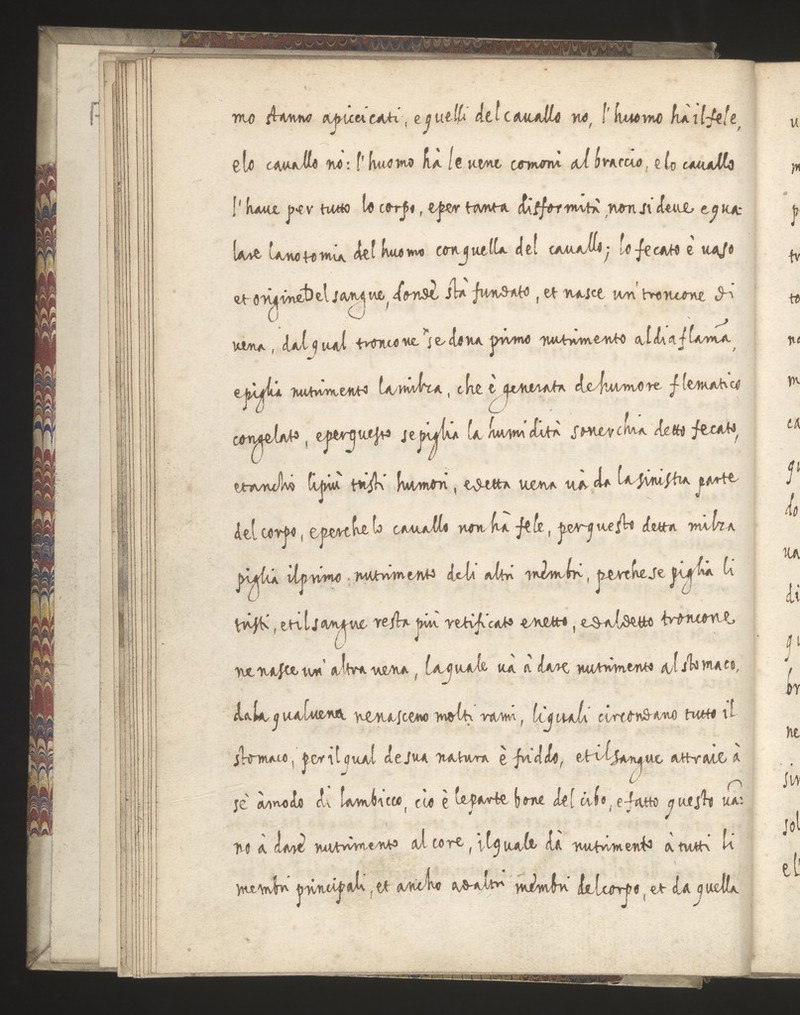 mo stanno apiccicati, e quelli del cauallo no, l'huomo hà il fele,
e lo cauallo nò: l'huomo hà le uene comoni al braccio, e lo cauallo
l'haue per tutto lo corpo, e per tanta disformità non si deue equa:
lare lanotomia del huomo con quella del cauallo; lo fecato è uaso
et origine del sangue, donde stà fundato, et nasce un' troncone di
uena, dal qual troncone se dona primo nutrimento al diaflama,
e piglia nutrimento la milza, che è generata de humore flematico
congelato, e per questo se piglia la humidità souerchia detto fecato,
et ancho li più tristi humori, e detta uena uà da la sinistra parte
del corpo, e perche lo cauallo non hà fele, per questo detta milza
piglia il primo nutrimento deli altri membri, perche se piglia li
tristi, et il sangue resta più retificato e netto, e dal detto troncone
ne nasce un' altra uena, la quale uà à dare nutrimento al stomaco,
dala qual uena ne nasceno molti rami, li quali circondano tutto il
stomaco, per il qual de sua natura è friddo, et il sangue attraie à
sè à modo di lambicco, cio è le parte bone del cibo, e fatto questo uà:
no à dare nutrimento al core, il quale dà nutrimento à tutti li
membri principali, et ancho ad altri membri del corpo, et da quella